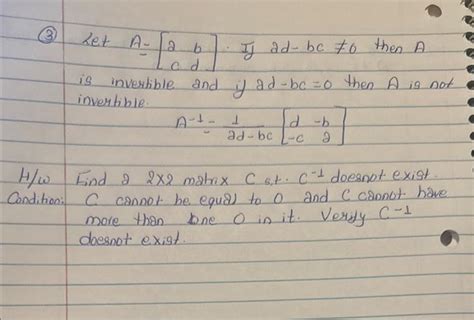 ③ Let A = [a b
c d]. If ad-bc ≠0 then A
is invertible and if ad-bc=0 then A is not
invertible.
A⁻¹ = 1/ad-bc [d -b
-c a]
H/w Find a 2x2 matrix C s.t. C⁻¹ doesnot exist.
Condition: C cannot be equal to 0 and C cannot have
more than one 0 in it. Verify C⁻¹
doesnot exist.